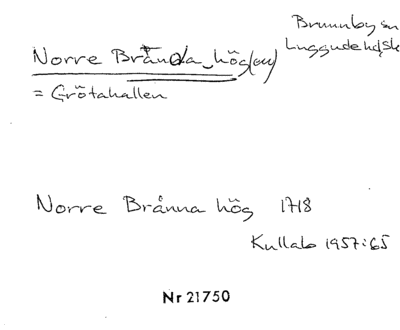 Brunnby sn
Luggude hd, Sk
Norre Brånda hög(en)
= Grötahallen
Norre Brånna hög 1718
Kullab 1957:65
Nr 21750